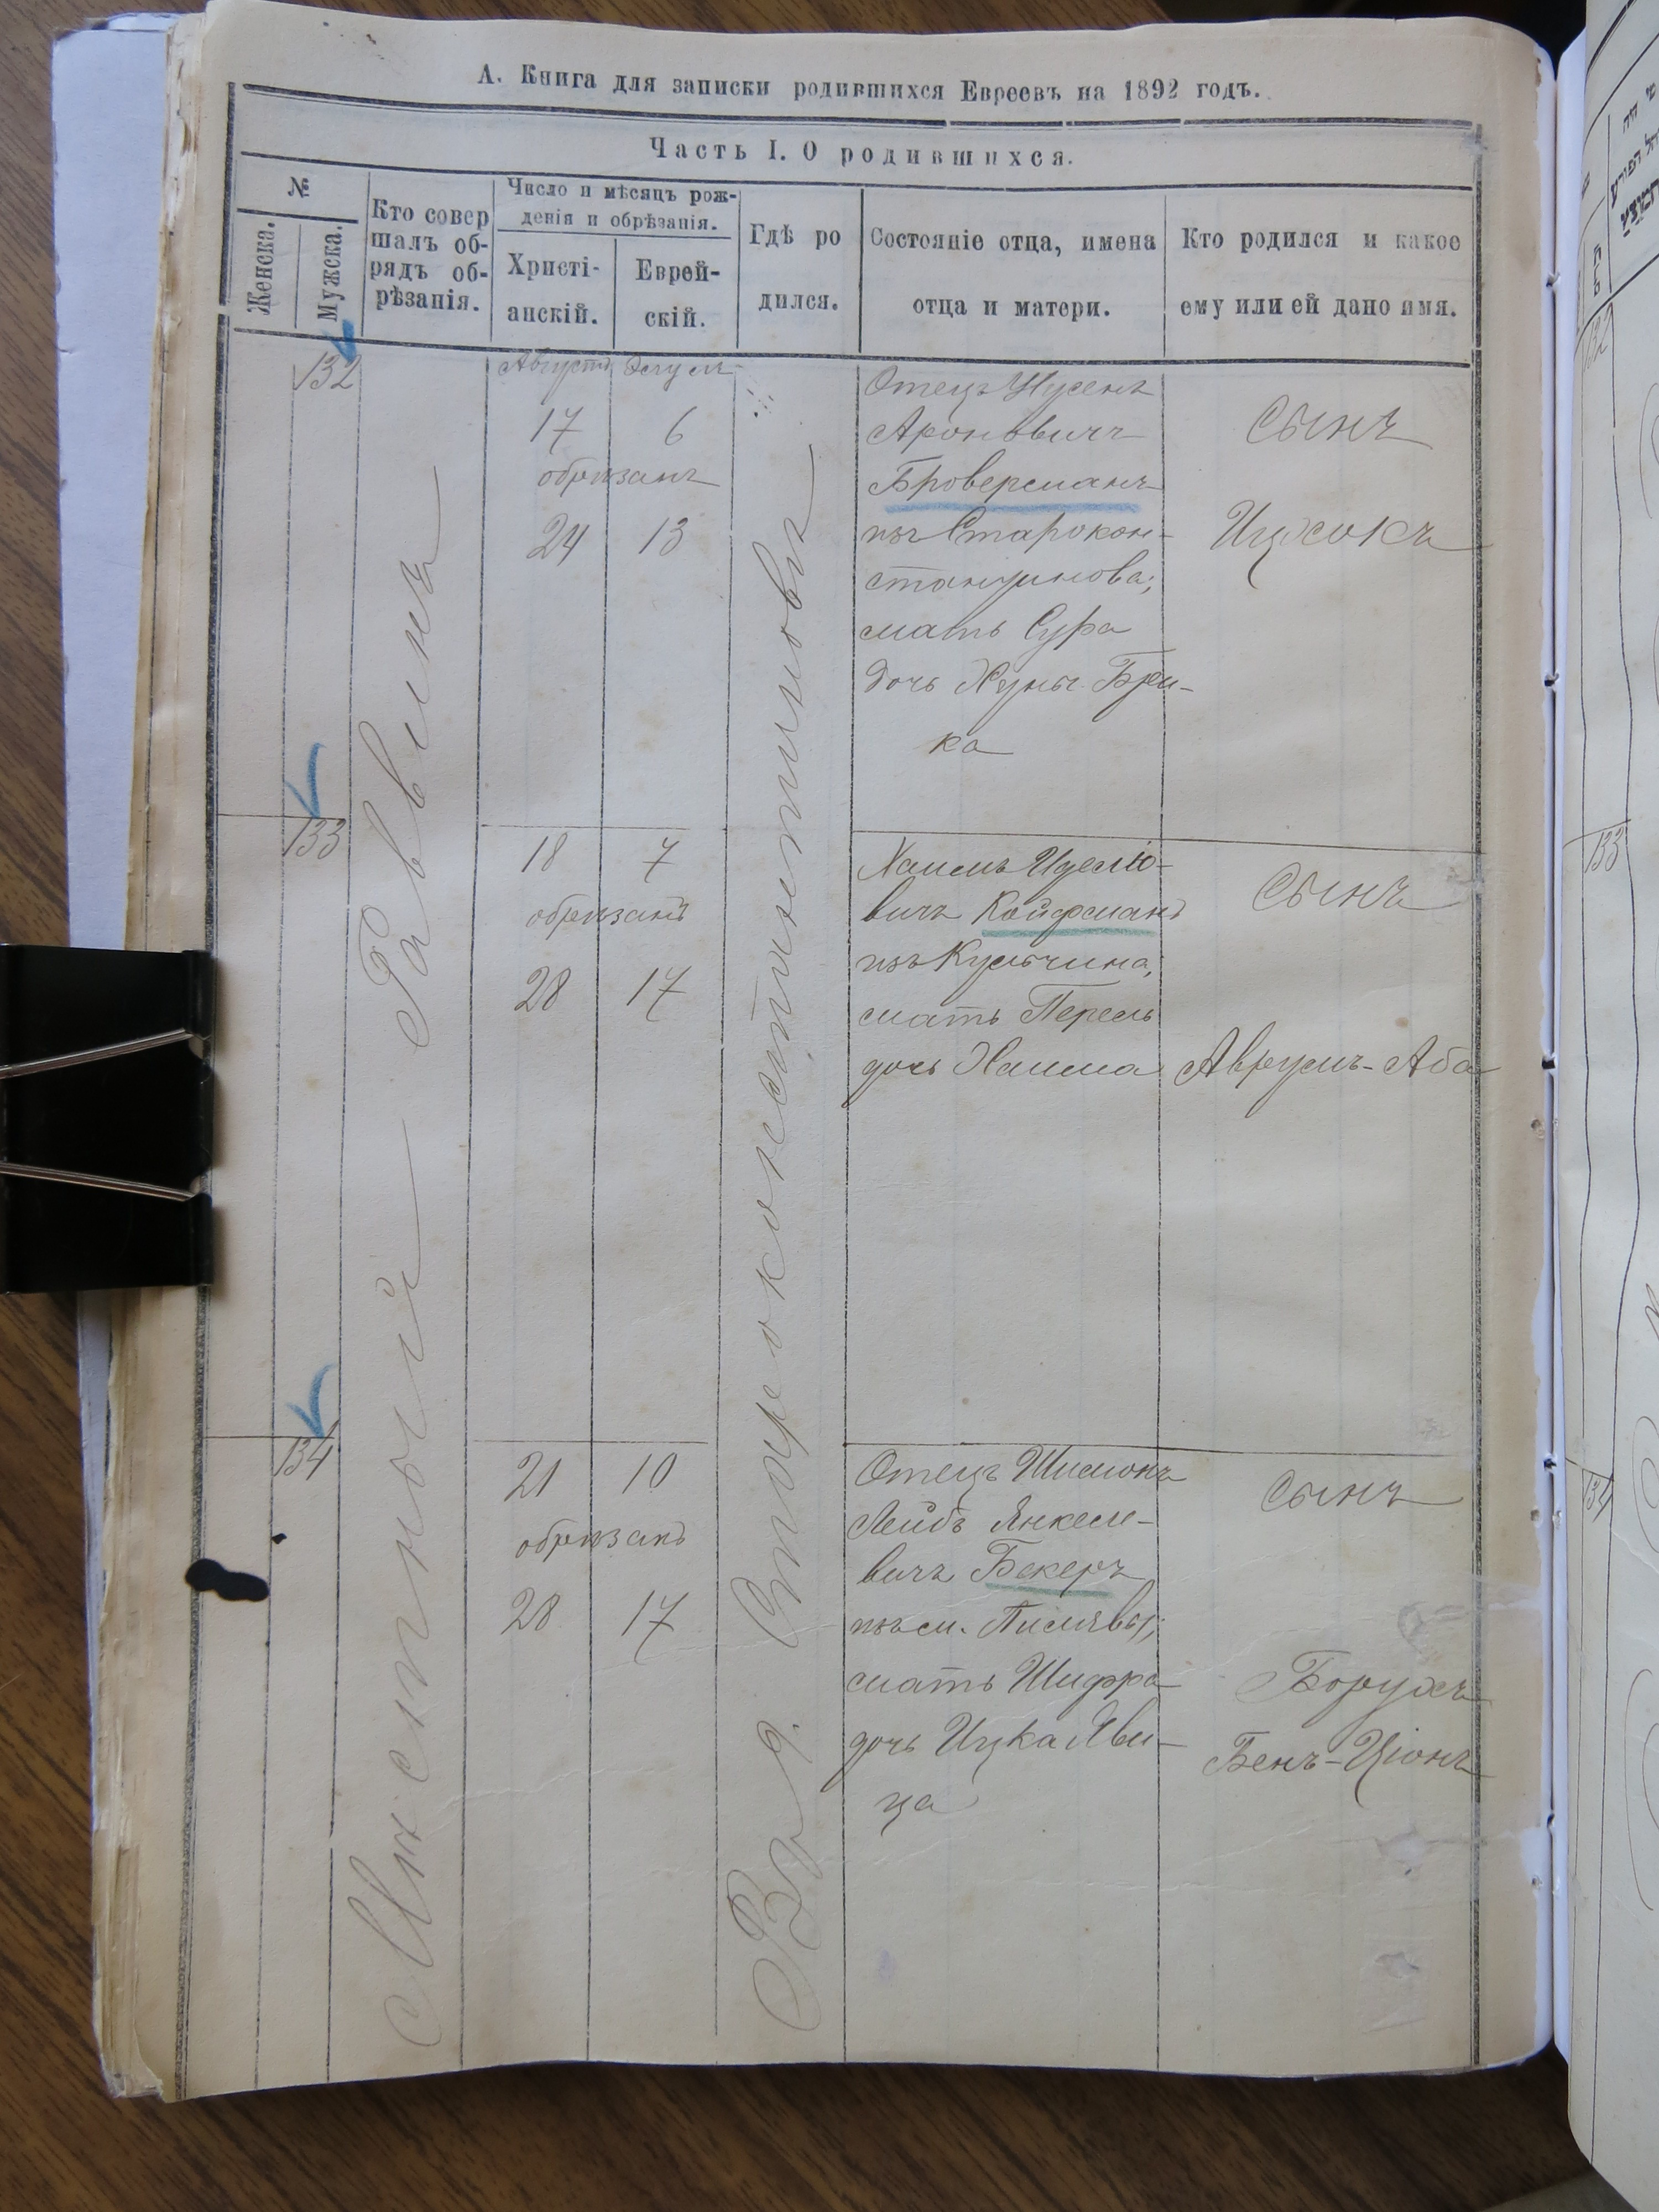 А. Книга для записки родившихся Евреевъ на 1892 годъ.
Часть I. О родившихся.
№
Женска.
Мужска.
Кто совер
шалъ об-
рядъ об-
рѣзанія.
Число и мѣсяцъ рож-
денія и обрѣзанія.
Христі-
анскій.
Еврей-
скій.
Гдѣ ро
дился.
Состояніе отца, имена
отца и матери.
Кто родился и какое
ему или ей дано имя.
Мѣстный Раввинъ
Въ г. Староконстантиновъ
132
Августъ Элулъ
17 6
обрѣзанъ
24 13
Отецъ Нусенъ
Ароновичъ
Броверманъ
изъ Старокон-
стантинова;
мать Сура
дочь Хуны Бри-
ка
Сынъ
Ицхокъ
133
18 7
обрѣзанъ
28 17
Хаимъ Иделіо-
вичъ Койфманъ
изъ Кульчина,
мать Перель
дочь Хаима
Сынъ
Аврумъ-Аба
134
21 10
обрѣзанъ
28 17
Отецъ Шимонъ
Лейбъ Янкеле-
вичъ Бекеръ
изъ м. Пилявы;
мать Шифра
дочь Ицка Яви-
ца
Сынъ
Борухъ
Бенъ-Ціонъ
132
133
134